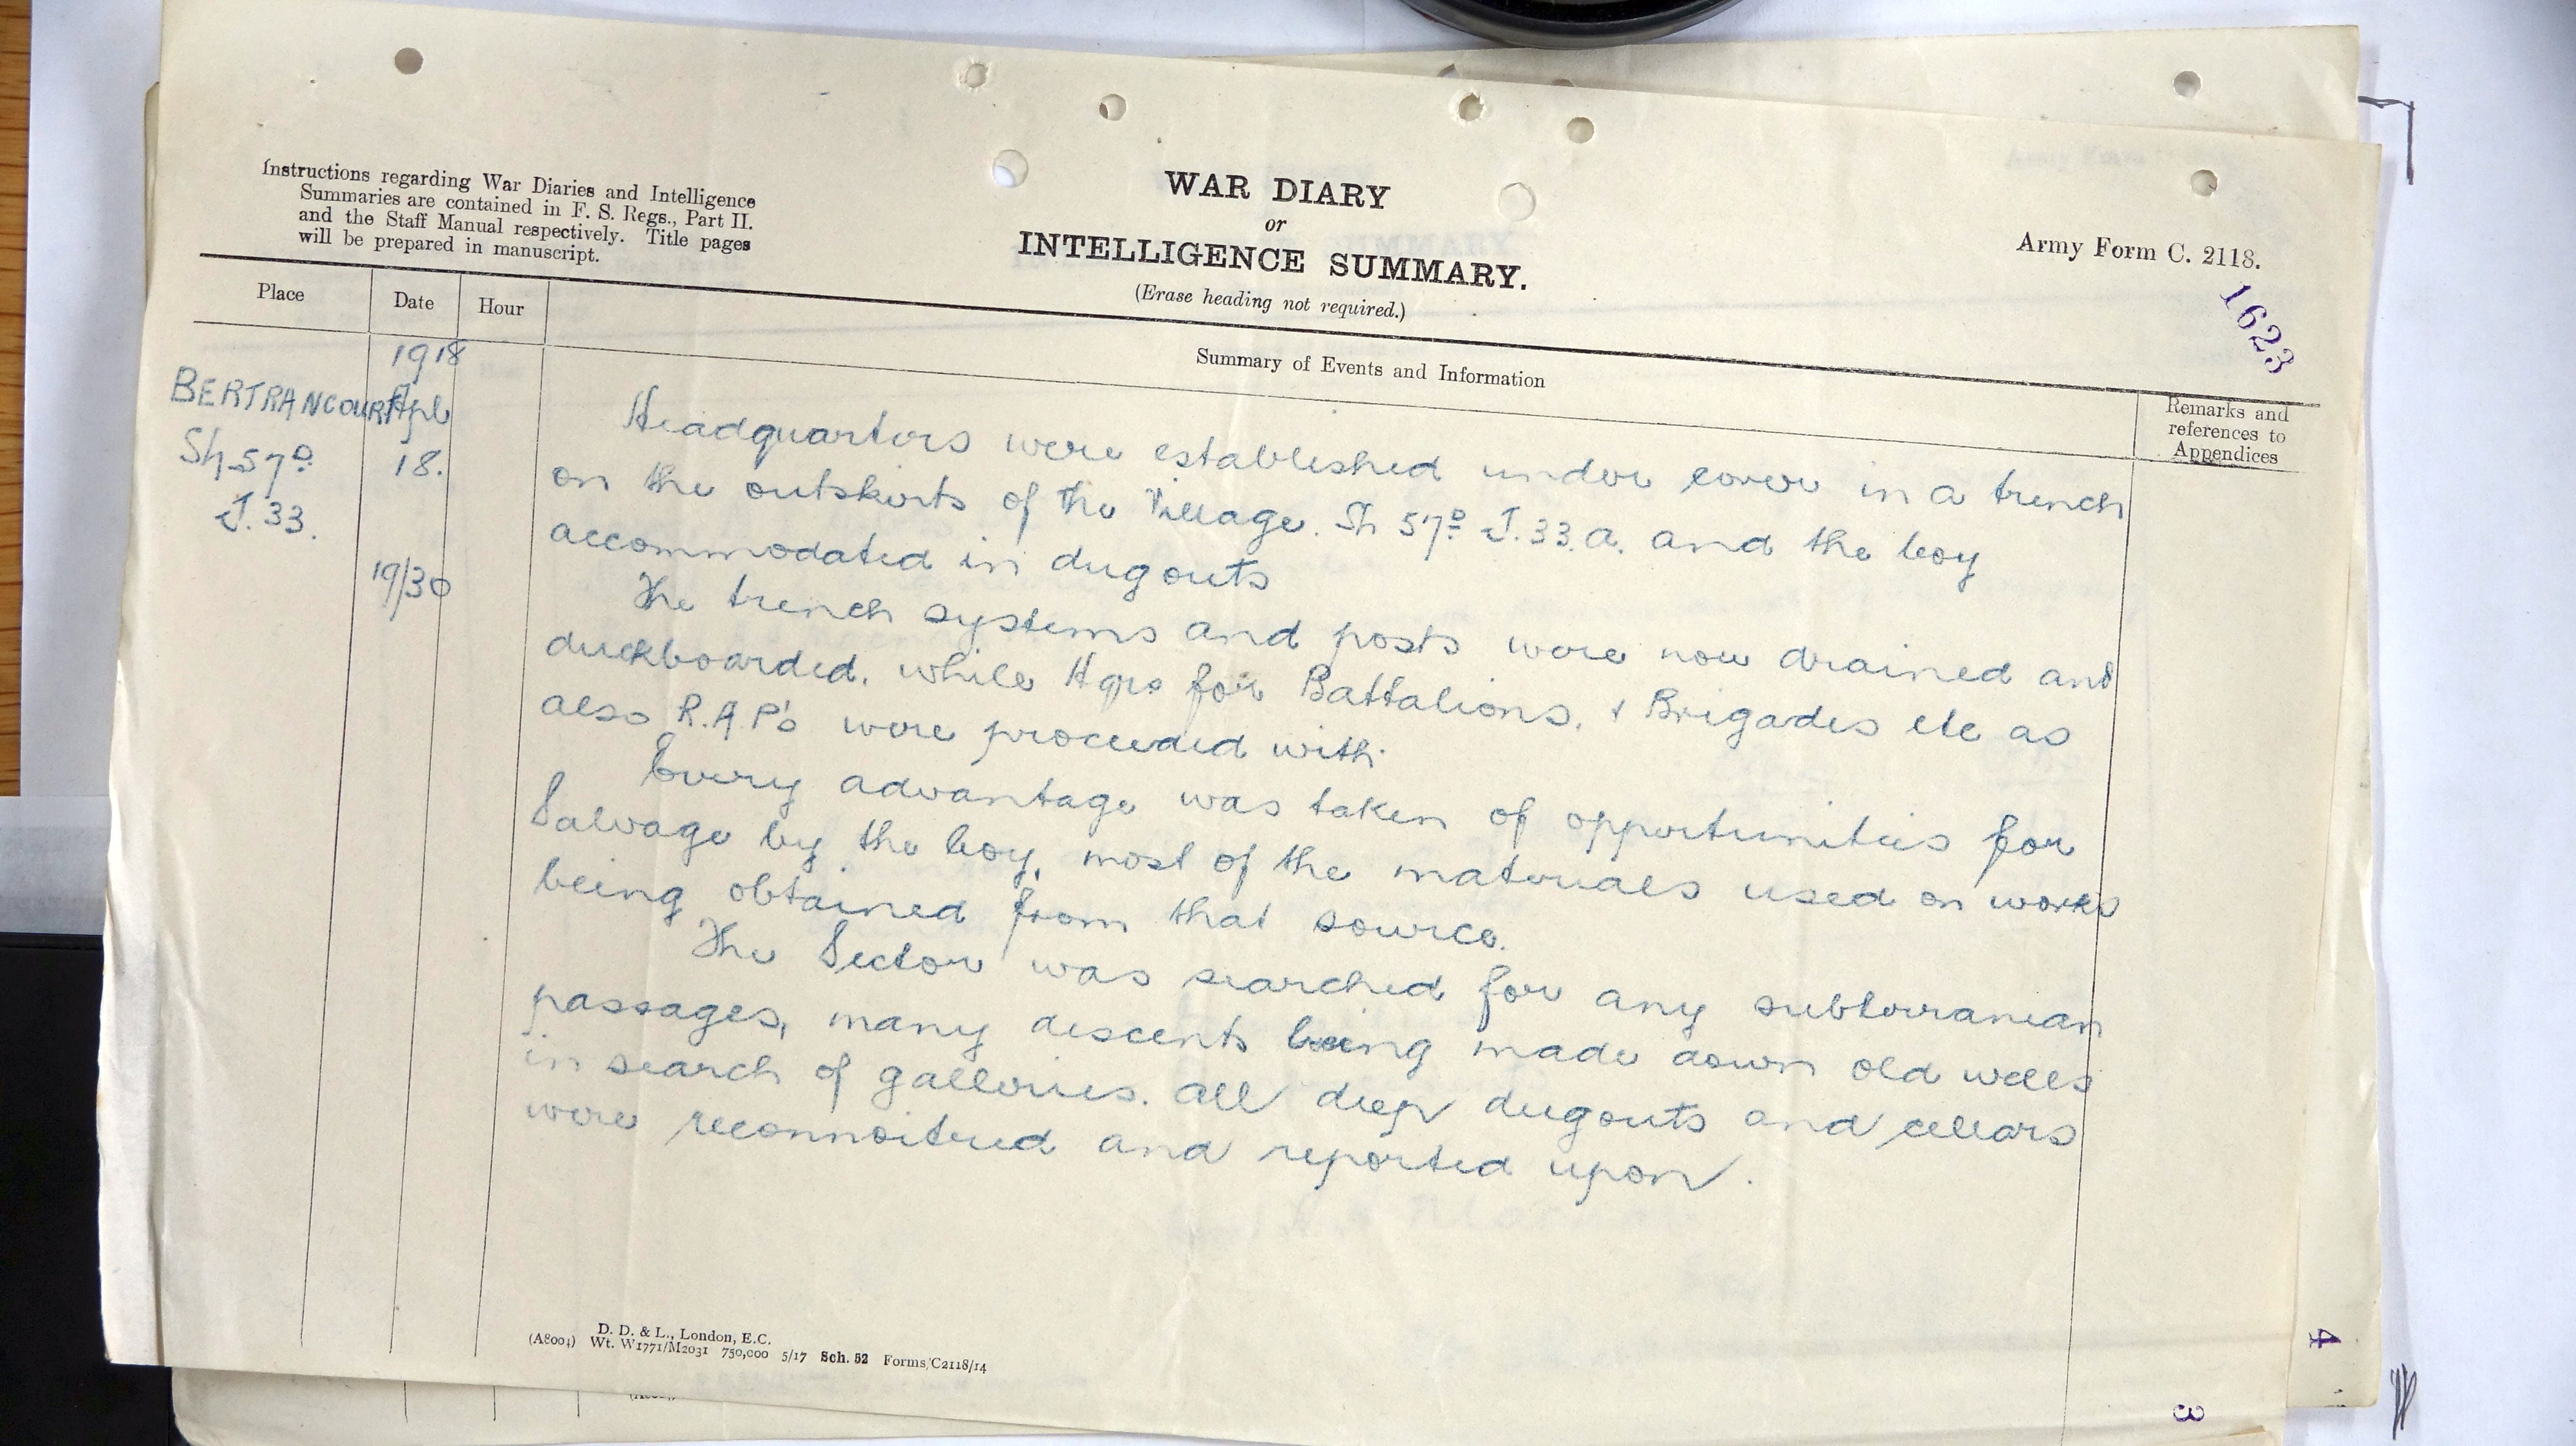 Instructions regarding War Diaries and Intelligence
Summaries are contained in F. S. Regs., Part II.
and the Staff Manual respectively. Title pages
will be prepared in manuscript.
WAR DIARY
or
INTELLIGENCE SUMMARY.
(Erase heading not required.)
Army Form C. 2118.
1623
Place
Date
Hour
Summary of Events and Information
Remarks and
references to
Appendices
1918
BERTRANCOURT Apl
Sh 57D 18.
J. 33.
Headquarters were established under cover in a trench
on the outskirts of the Village. Sh 57D J.33.a. and the Coy
accommodated in dugouts
19/30
The trench systems and posts were now drained and
duckboarded, while Hqrs for Battalions, & Brigades etc as
also R.A.P's were proceeded with.
Every advantage was taken of opportunities for
Salvage by the Coy, most of the materials used on works
being obtained from that source.
The Sector was searched for any subterranean
passages, many descents being made down old wells
in search of galleries. All deep dugouts and cellars
were reconnoitred and reported upon.
D. D. & L., London, E.C.
(A8004) Wt. W1771/M2031 750,000 5/17 Sch. 52 Forms/C2118/14
4
3